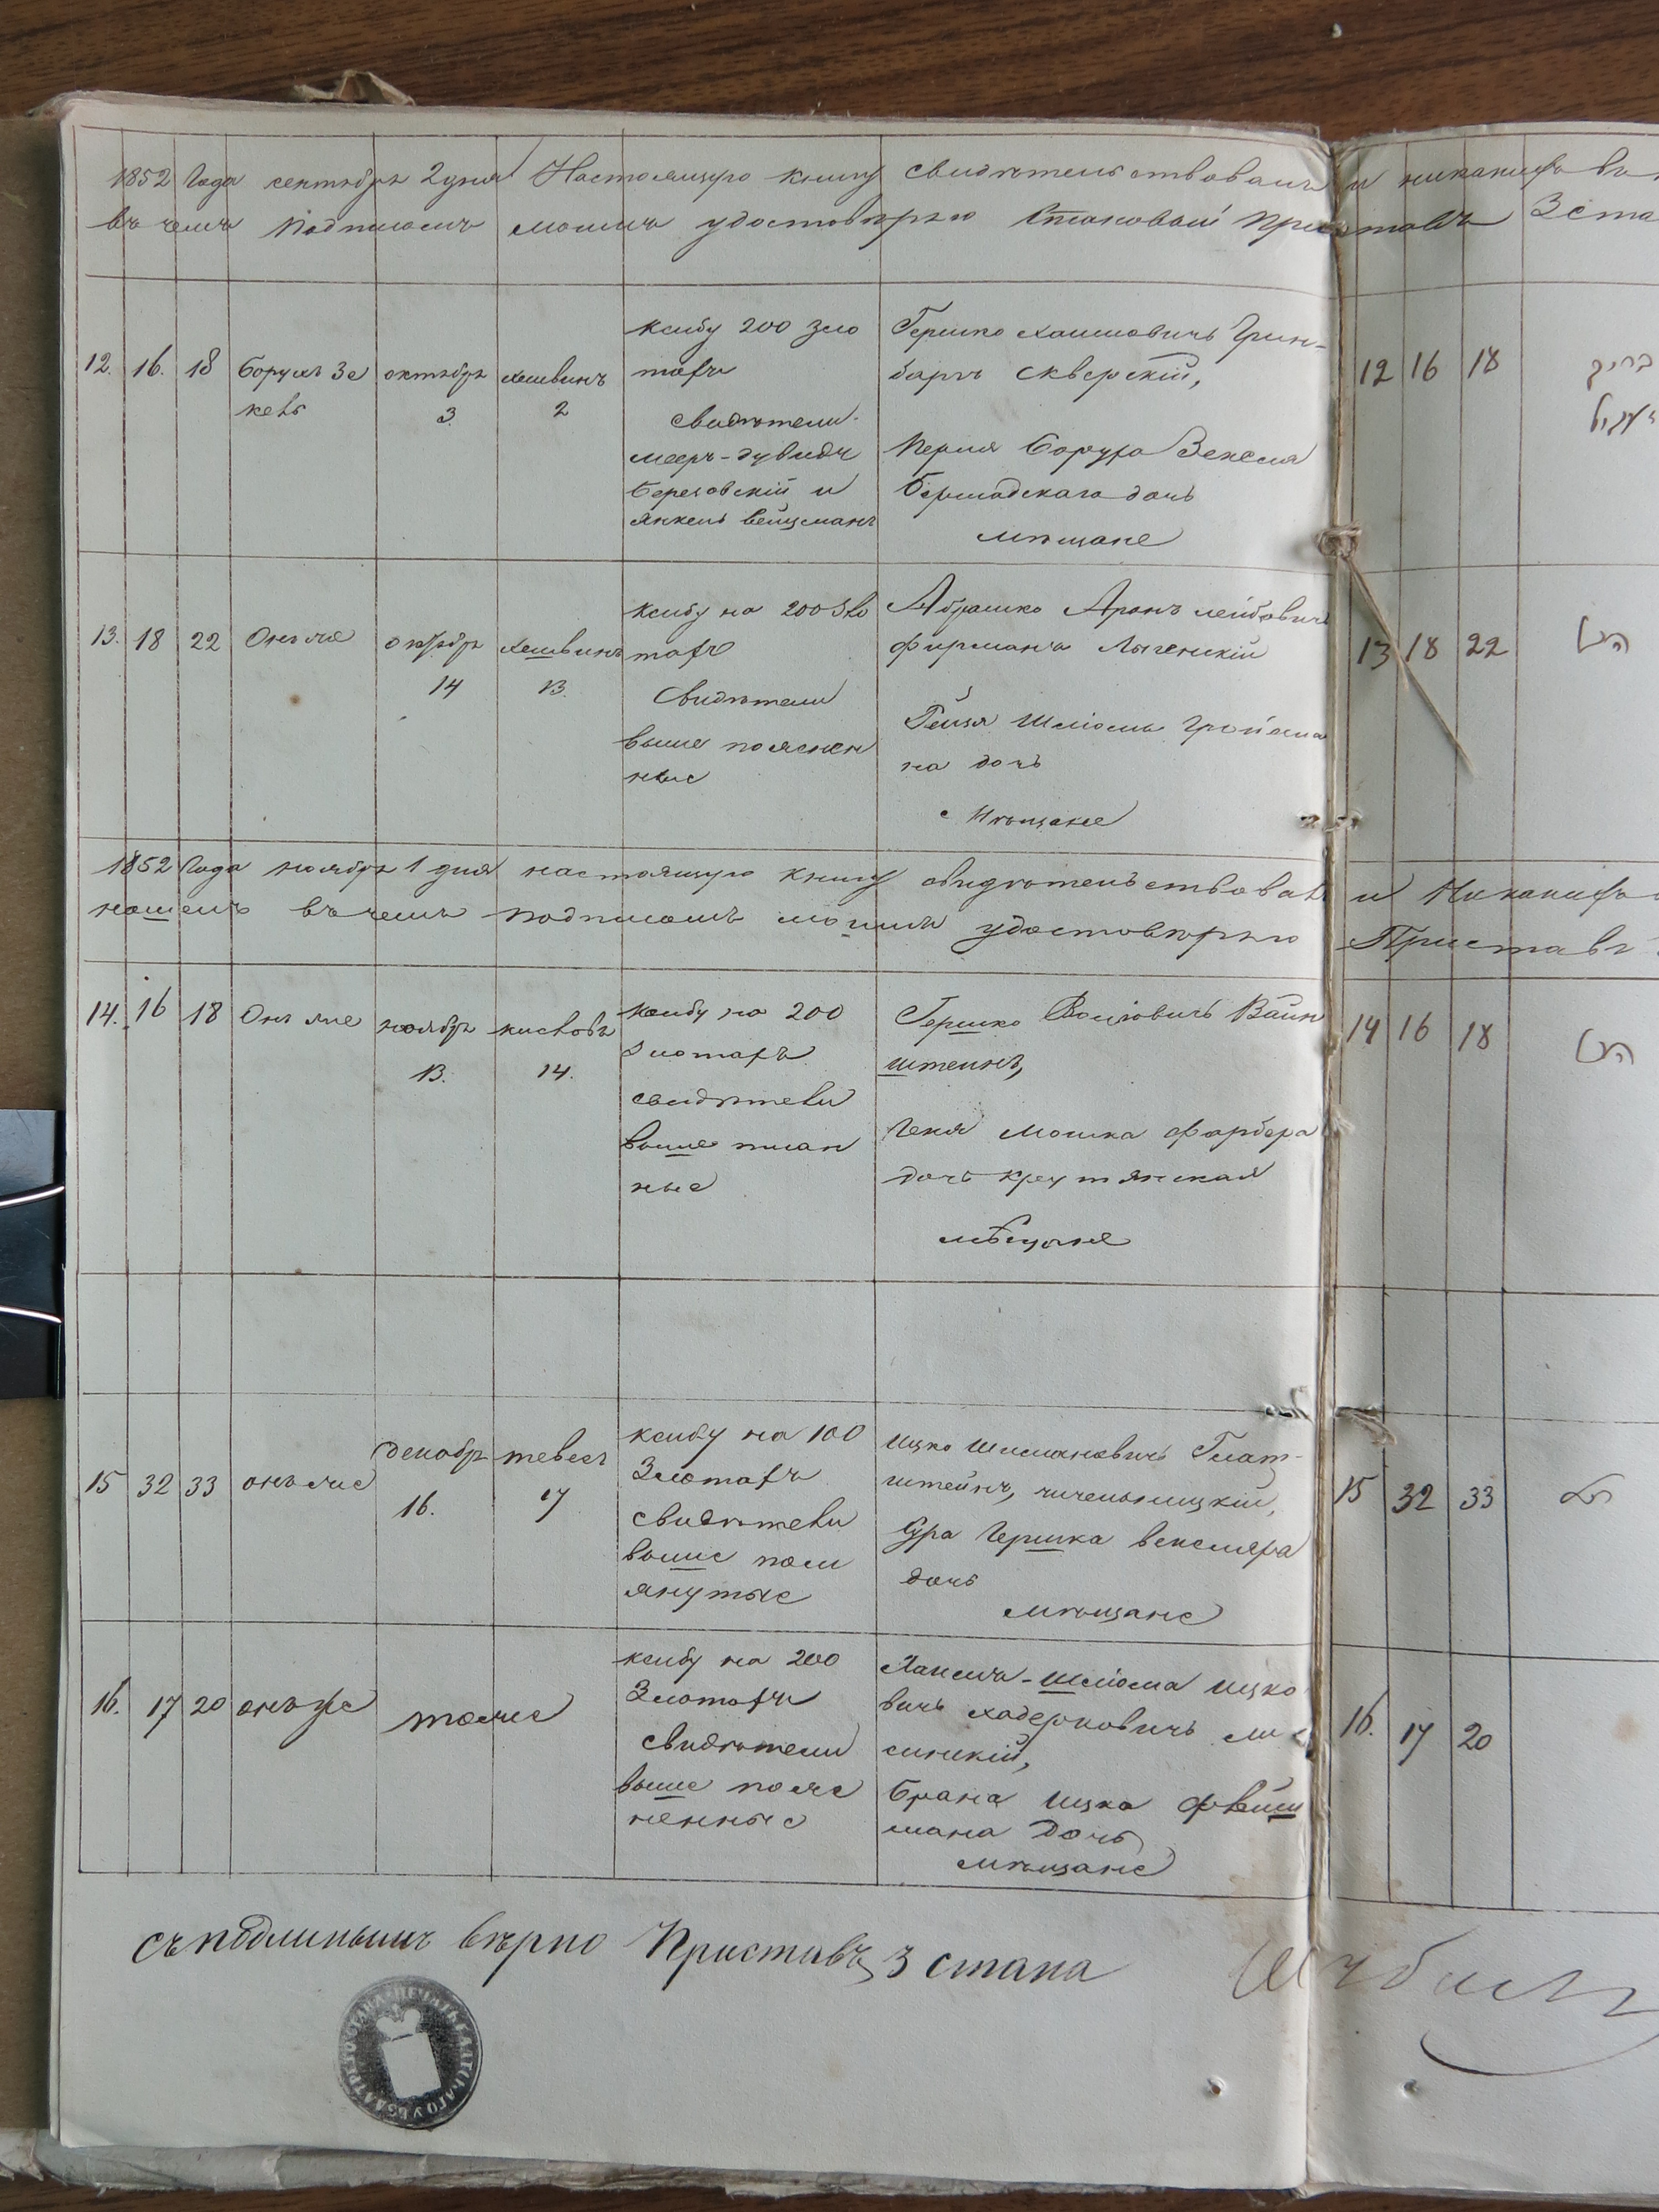 1852 Года сентября 2 дня Настоящую книгу свидѣтельствовалъ и никакихъ
въ чемъ подписомъ моимъ удостовѣряю Становой Приставъ 3 ста
12. 16. 18 Борухъ Зе
кель
октябрь
3.
хешвинъ
2
ксибу 200 зло
тахъ
свидѣтели
мееръ-дувидъ
Березовскій и
янкель вейцманъ
Гершко хаимовичъ Грин-
баргъ сквєрскій,
Перля Боруха Зекеля
Бершадскаго дочь
мѣщане
12 16 18
ברוך
13. 18 22 Онъ же
октябрь
14
хешвинъ
13.
ксибу на 200 зло
тахъ
Свидѣтели
выше пояснен
ные
Абрашко Аронъ лейбовичъ
фирмана
Шліомы Гройсма
на дочь
мѣщане
13 18 22
הנ״ל
1852 Года ноября 1 дня настоящую книгу свидѣтельствовалъ и Никакихъ
нашелъ въ чемъ подписомъ моимъ удостовѣряю Приставъ
14. 16 18 Онъ же
ноябрь
13.
кислювъ
14.
ксибу на 200
злотахъ
свидѣтели
выше писан
ные
Гершко Волковичъ Вайн
штейнъ,
Геня Мошка Фарбера
дочь крутянская
мѣщане
14 16 18
הנ״ל
15 32 33 онъ же
декабр
16.
тевесъ
17
ксибу на 100
Злотахъ
свидѣтели
выше пом
янутые
Ицко Шимановичъ Глат-
штейнъ, чичельницкій,
Сура Гершка векслера
дочь
мѣщане
15 32 33
הנ״ל
16. 17 20 онъ же
тоже
ксибу на 200
Злотахъ
свидѣтели
выше поясне
ненные
Шліома Ицко
вичъ хадерковичъ
Брана Ицка Флейш
мана дочь
мѣщане
16. 17 20
съ подлиннымъ вѣрно Приставъ 3 стана